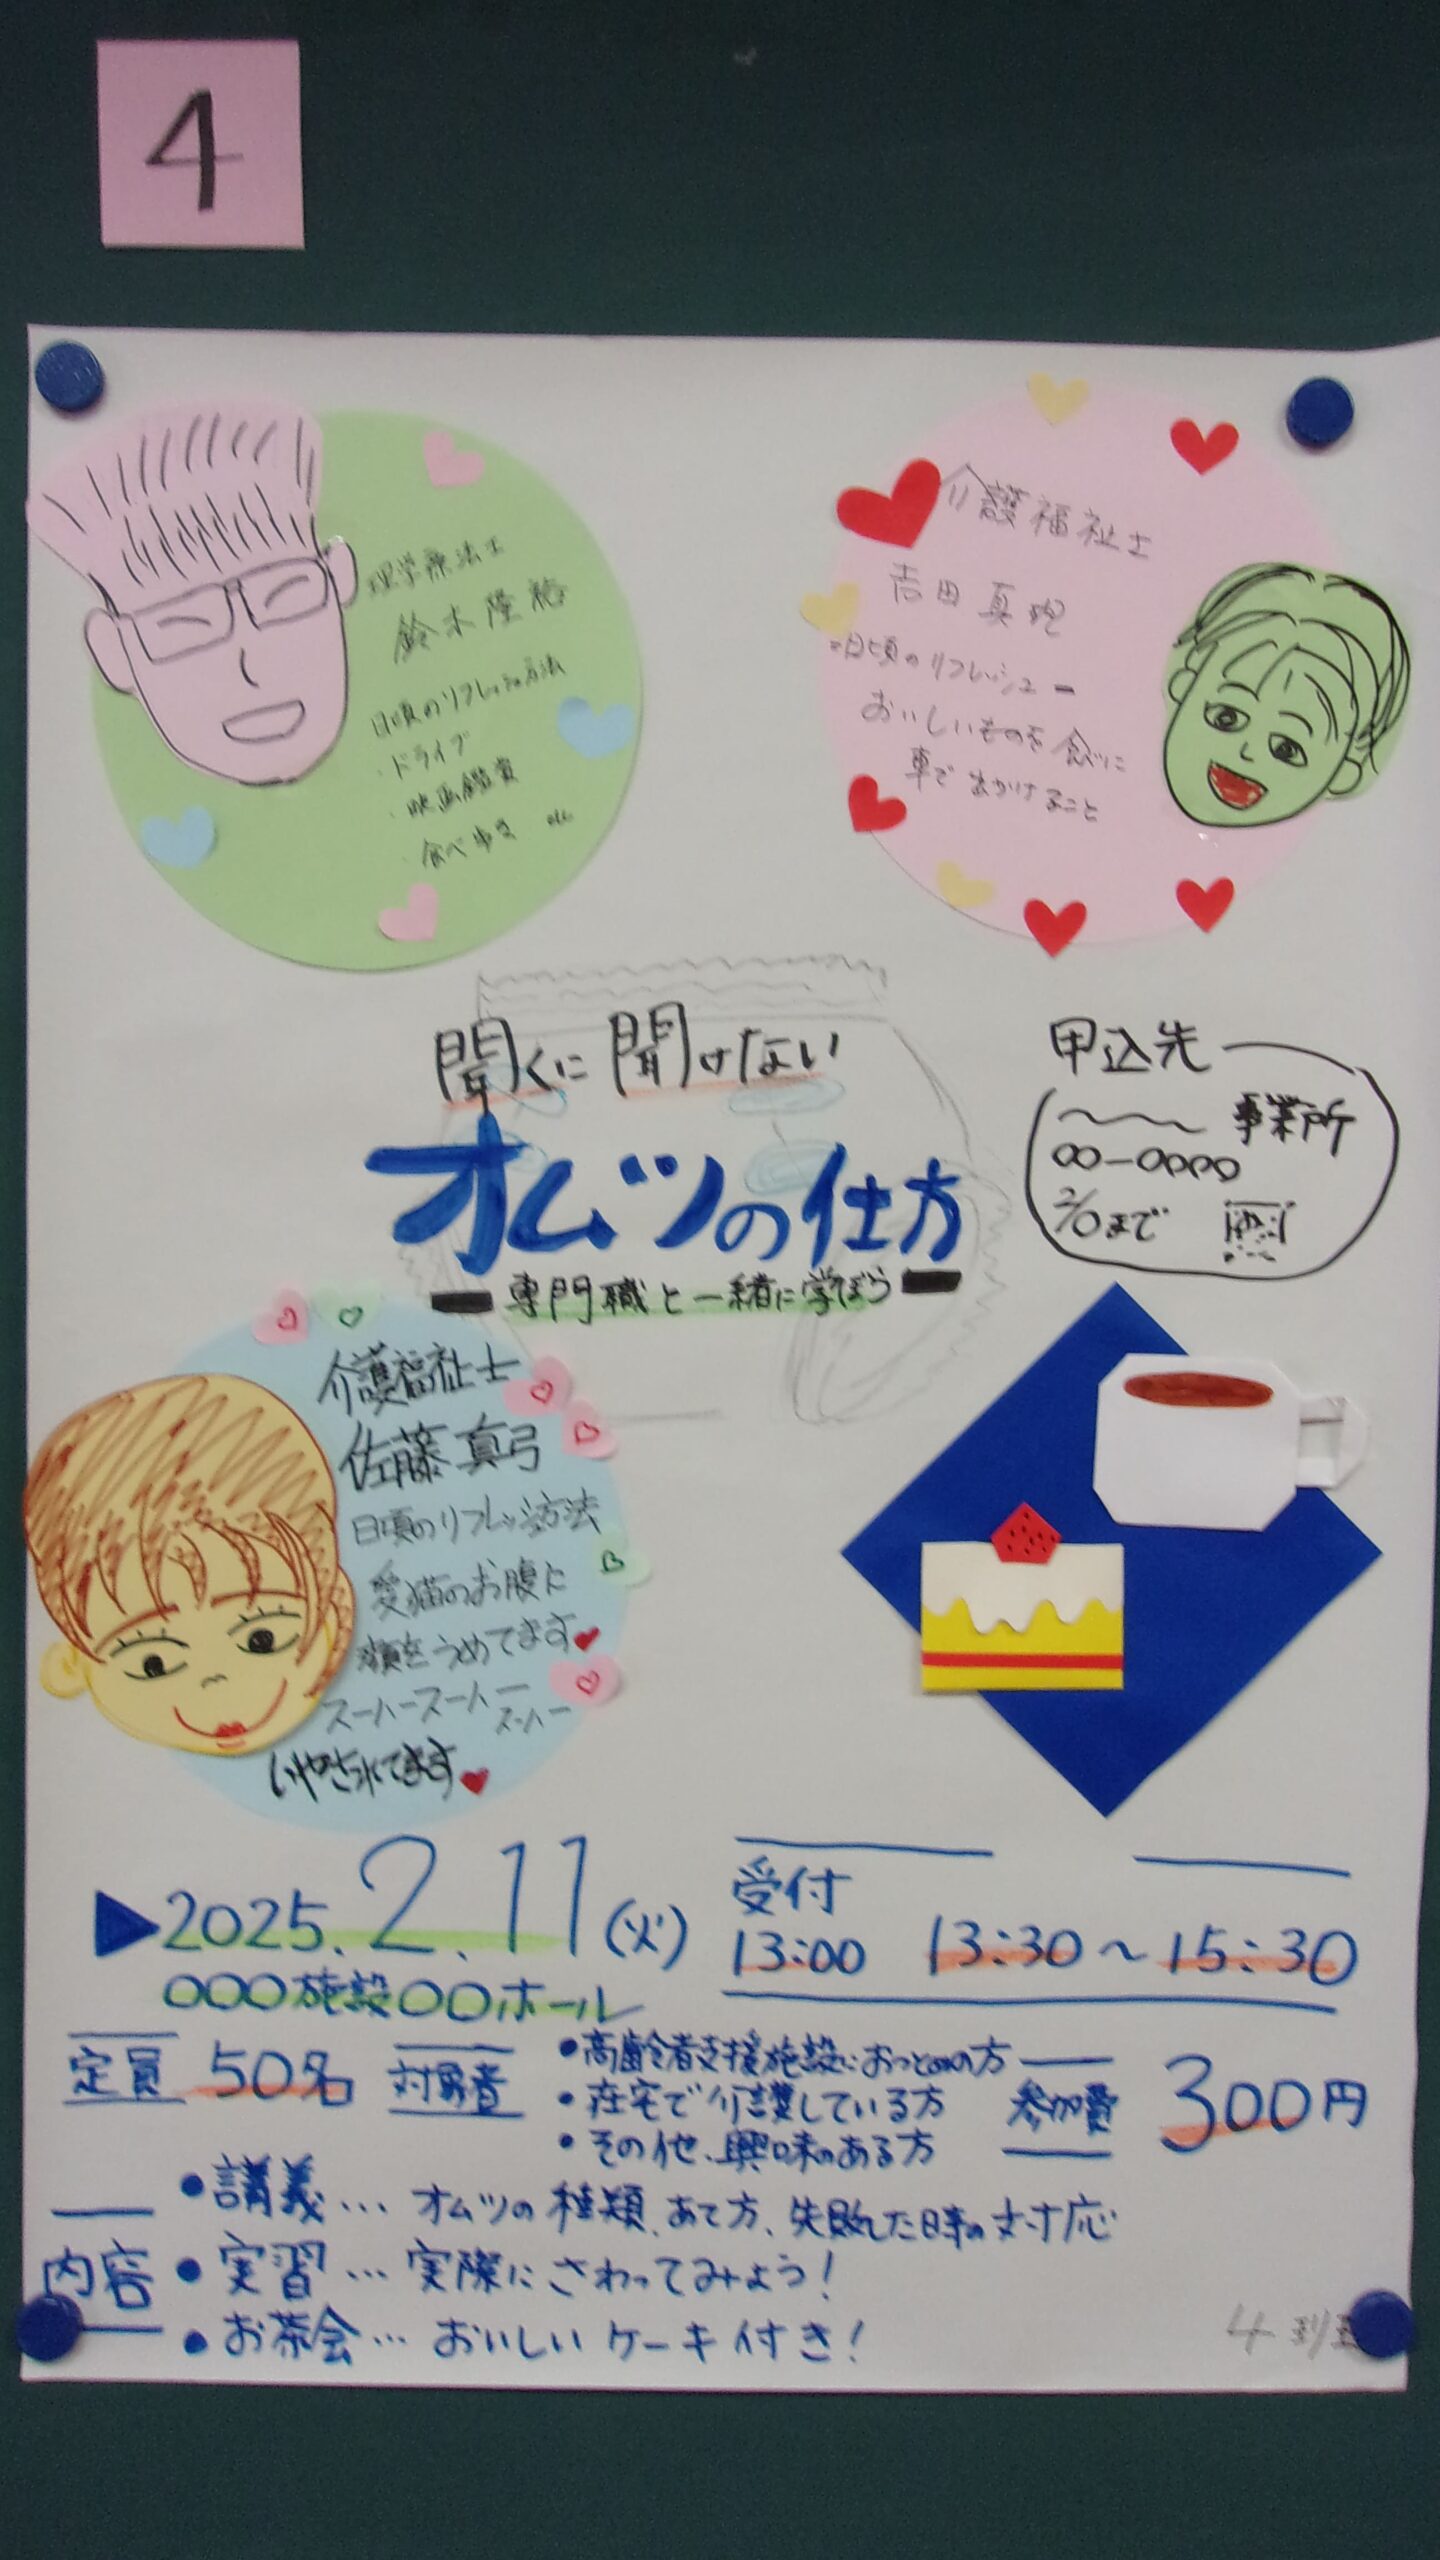 4
理学療法士
鈴木隆裕
日頃のリフレッシュ方法
・ドライブ
・映画鑑賞
・食べ歩き etc
介護福祉士
吉田真
・日頃のリフレッシュー
おいしいものを食べに
車で出かけること
聞くに聞けない
オムツの仕方
専門職と一緒に学ぼう
申込先
事業所
00-0000
2/0まで
介護福祉士
佐藤真弓
日頃のリフレッシュ方法
愛猫のお腹に
顔をうめてます♥
スーハースーハー
スーハー
いやされてます♥
▶2025.2.11(火)
○○○施設○○ホール
受付
13:00 13:30~15:30
定員 50名
対象者
・高齢者支援施設におつとめの方
・在宅で介護している方
・その他、興味のある方
参加費 300円
内容
・講義…オムツの種類、あて方、失敗した時の対応
・実習…実際にさわってみよう!
・お茶会…おいしいケーキ付き!
4班